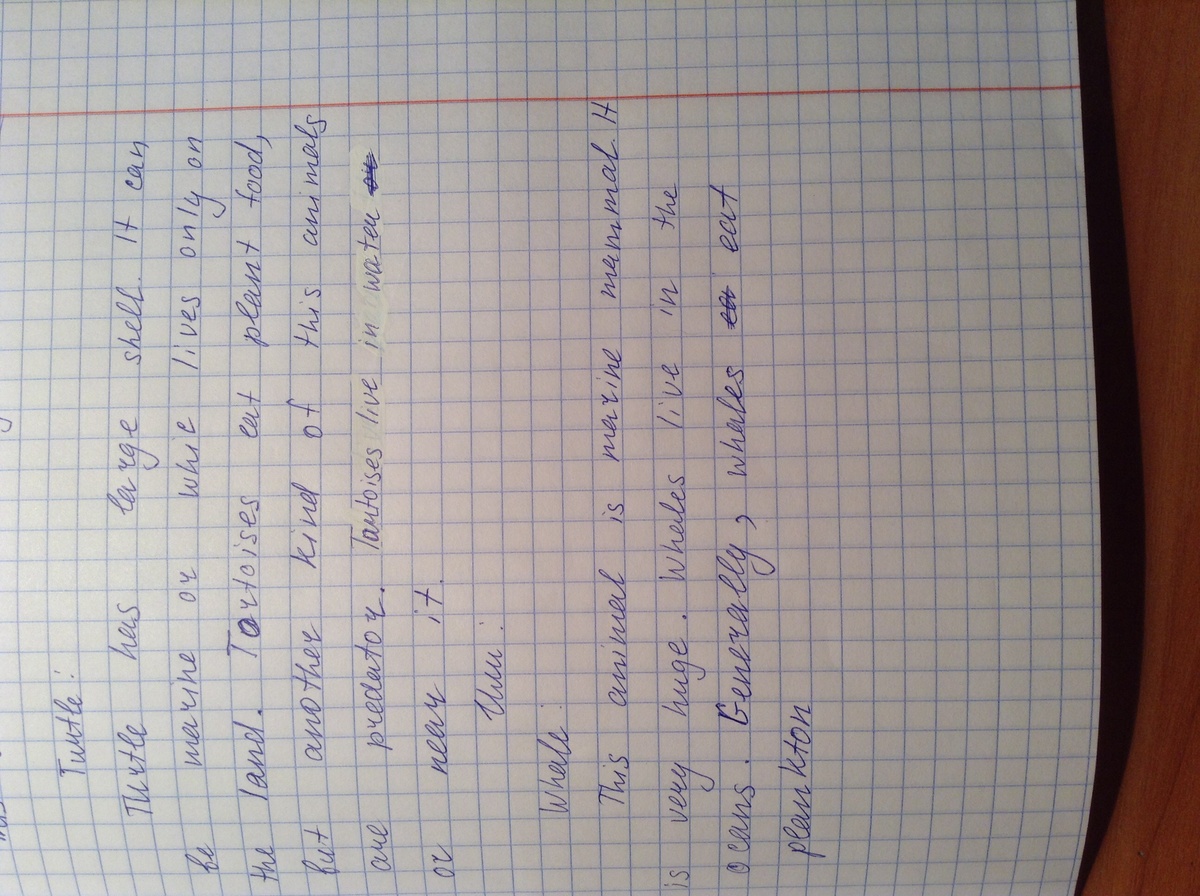 Turtle:
Turtle has large shell. It can
be marine or whic lives only on
the land. Tortoises eat plant food,
but another kind of this animals
are predator. Tortoises live in water
or near it.
Или:
Whale:
This animal is marine mammal. It
is very huge. Whales live in the
ocans. Generally, whales eat
plankton